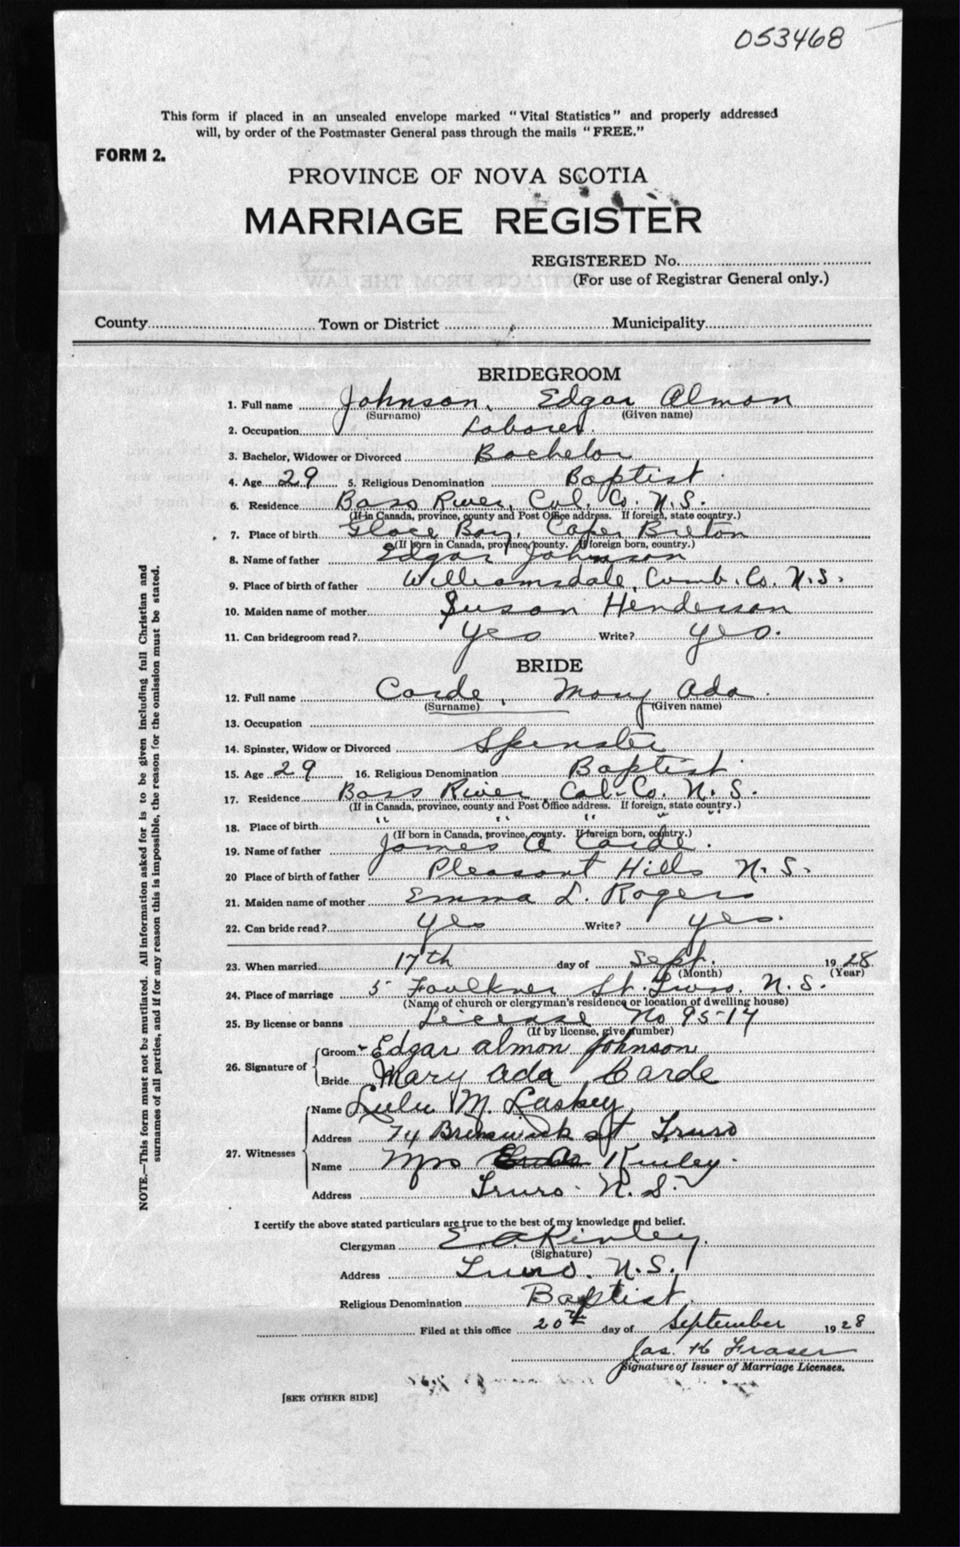 053468
This form if placed in an unsealed envelope marked "Vital Statistics" and properly addressed
will, by order of the Postmaster General pass through the mails "FREE."
FORM 2.
PROVINCE OF NOVA SCOTIA
MARRIAGE REGISTER
REGISTERED No.
(For use of Registrar General only.)
County Town or District Municipality
BRIDEGROOM
1. Full name Johnson, Edgar Almon
(Surname) (Given name)
2. Occupation Laborer.
3. Bachelor, Widower or Divorced Bachelor
4. Age 29 5. Religious Denomination Baptist
6. Residence Bass River, Col. Co. N.S.
(If in Canada, province, county and Post Office address. If foreign, state country.)
7. Place of birth Glace Bay, Cape Breton
(If born in Canada, province, county. If foreign born, country.)
8. Name of father Edgar Johnson
9. Place of birth of father Williamsdale, Cumb. Co. N.S.
10. Maiden name of mother Susan Henderson
11. Can bridegroom read? yes Write? yes.
BRIDE
12. Full name Carde, Mary Ada.
(Surname) (Given name)
13. Occupation
14. Spinster, Widow or Divorced Spinster
15. Age 29 16. Religious Denomination Baptist.
17. Residence Bass River, Col. Co. N.S.
(If in Canada, province, county and Post Office address. If foreign, state country.)
18. Place of birth " " " "
(If born in Canada, province, county. If foreign born, country.)
19. Name of father James A Carde.
20 Place of birth of father Pleasant Hills N.S.
21. Maiden name of mother Emma L. Rogers
22. Can bride read? yes Write? yes.
23. When married 17th day of Sept. 1928
(Month) (Year)
24. Place of marriage 5 Faulkner St. Truro. N.S.
(Name of church or clergyman's residence or location of dwelling house)
25. By license or banns License No 9514
(If by license, give number)
26. Signature of
Groom Edgar almon Johnson
Bride Mary Ada Carde
27. Witnesses
Name Lulu M. Laskey
Address 74 Brunswick St Truro
Name Mrs Kinley.
Address Truro. N.S.
I certify the above stated particulars are true to the best of my knowledge and belief.
Clergyman E. A Kinley.
(Signature)
Address Truro. N.S.
Religious Denomination Baptist.
Filed at this office 20th day of September 1928
Jas. H Fraser
Signature of Issuer of Marriage Licenses.
[SEE OTHER SIDE]
NOTE.—This form must not be mutilated. All information asked for is to be given including full Christian and
surnames of all parties, and if for any reason this is impossible, the reason for the omission must be stated.